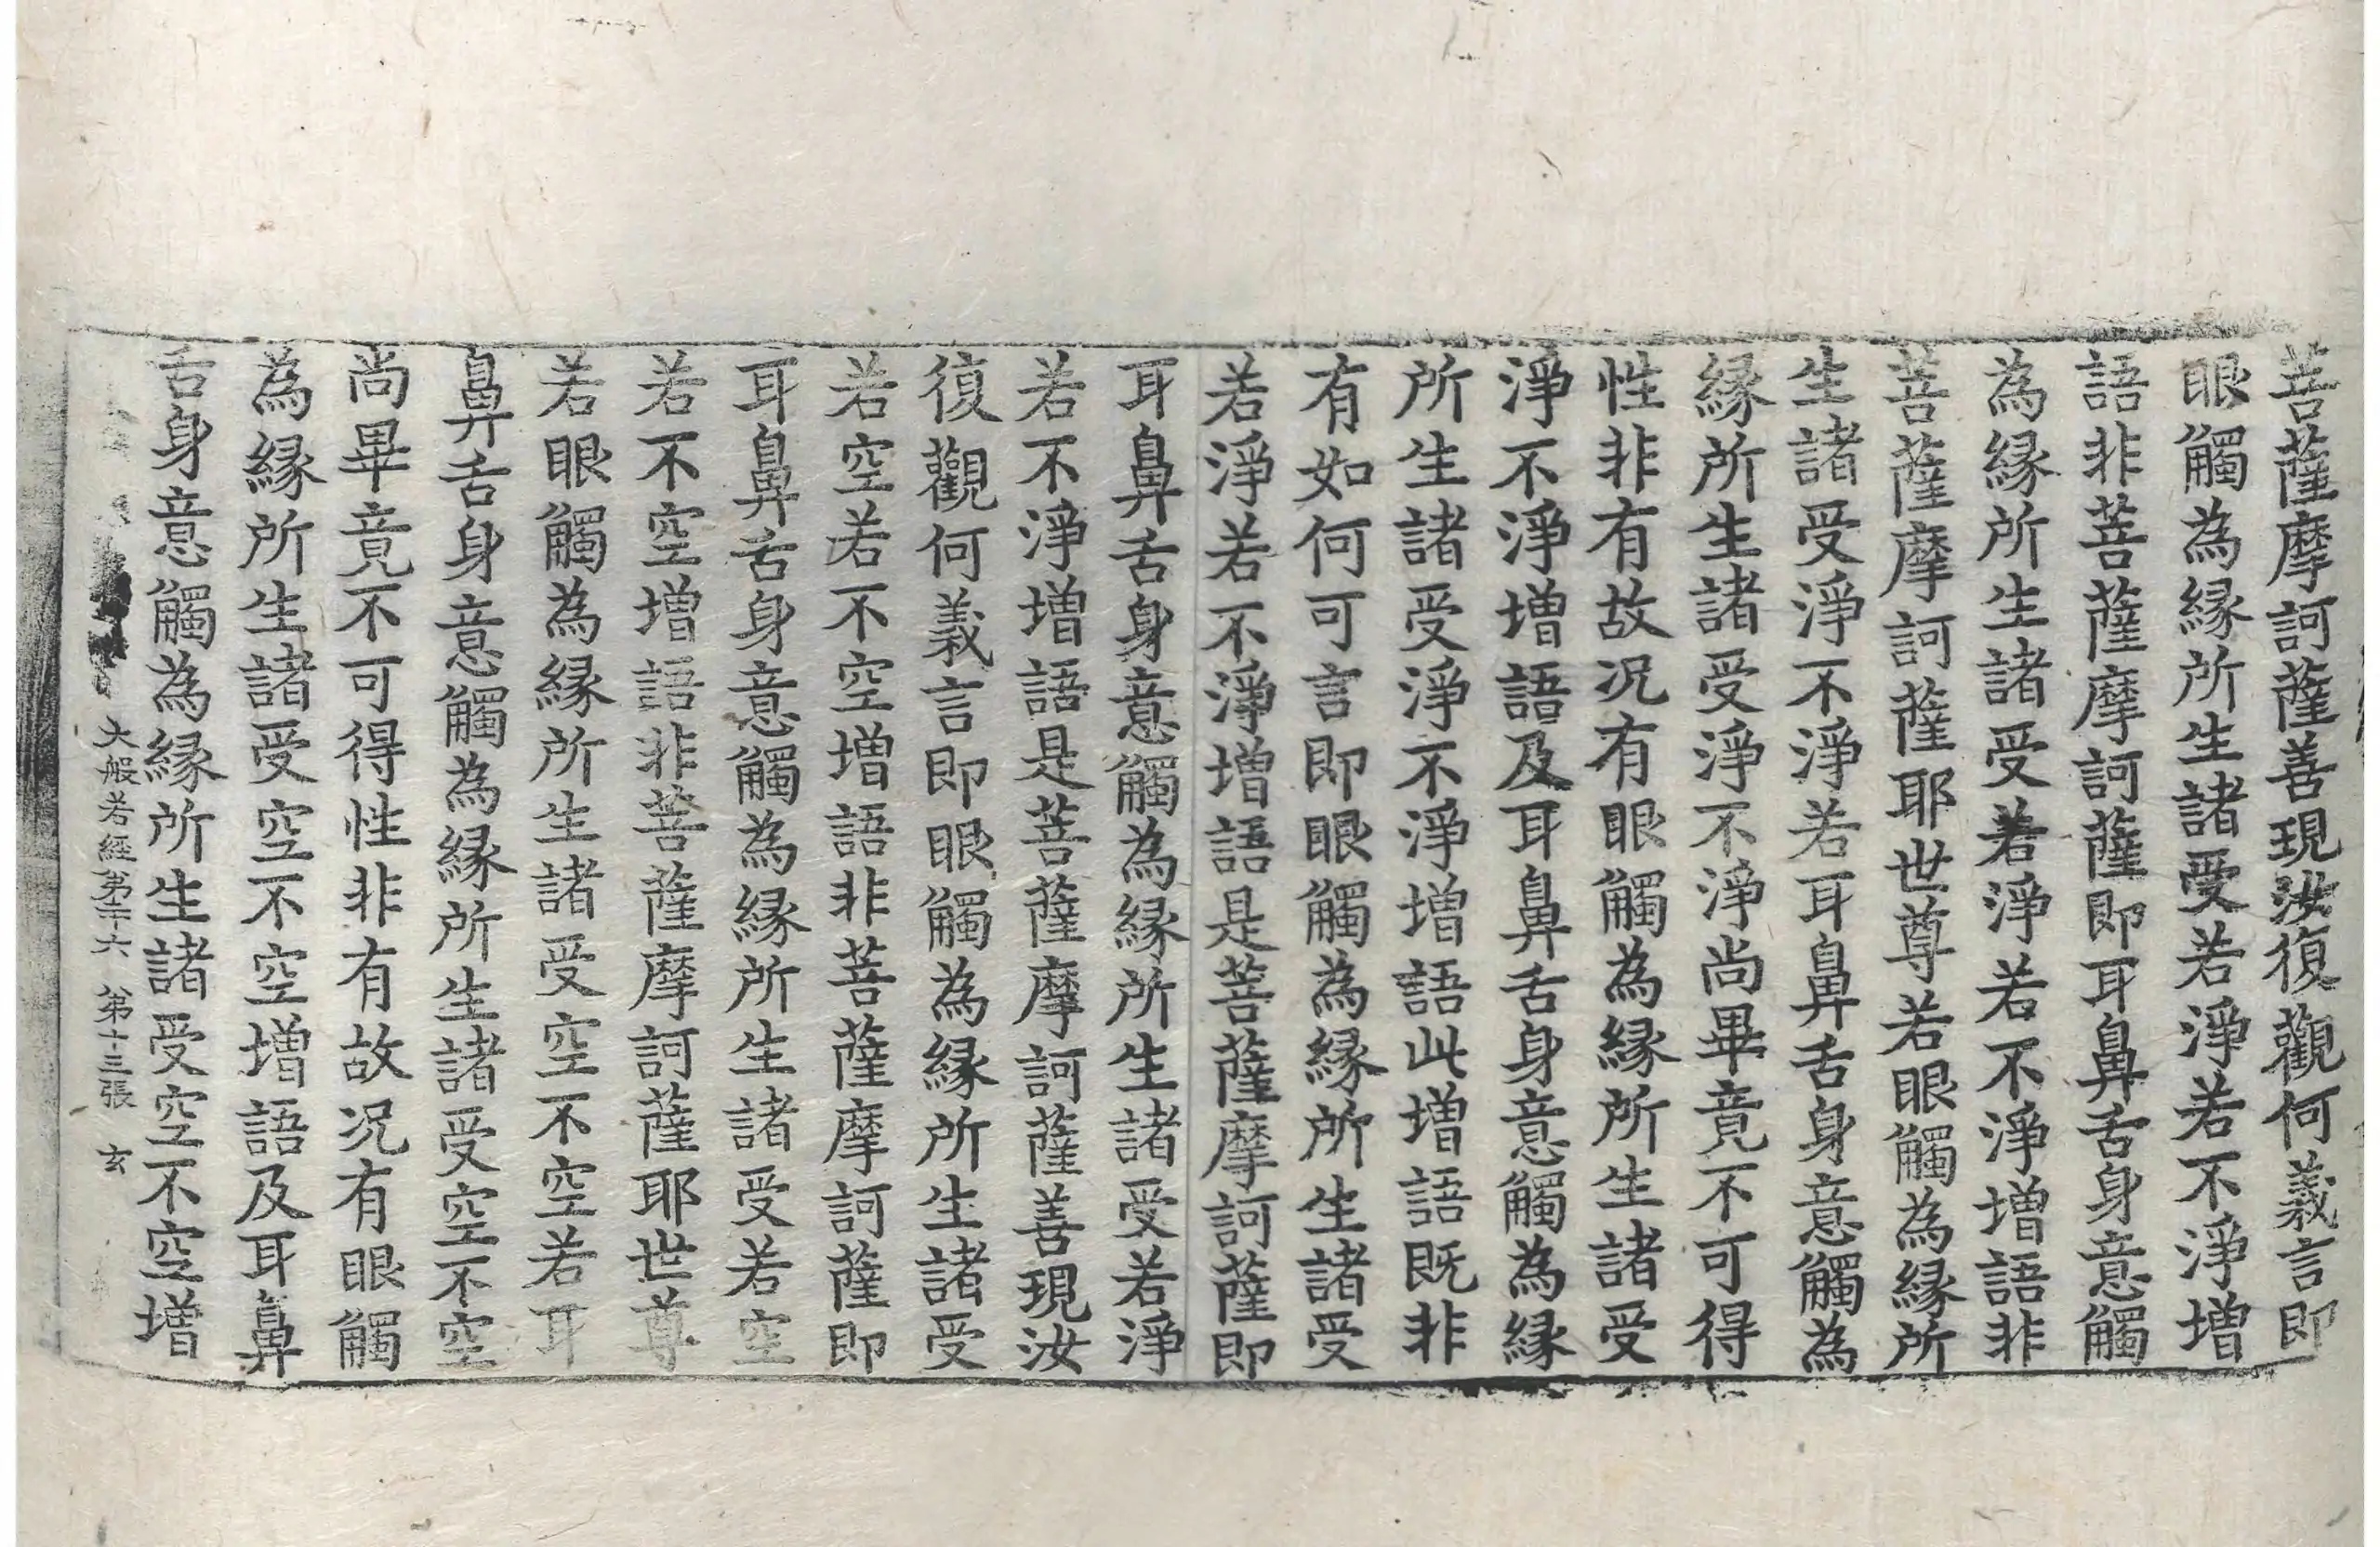 菩薩摩訶薩善現汝復觀何義言即
眼觸為縁所生諸受若淨若不淨増
語非菩薩摩訶薩即耳鼻舌身意觸
為縁所生諸受若淨若不淨増語非
菩薩摩訶薩耶世尊若眼觸為縁所
生諸受淨不淨若耳鼻舌身意觸為
縁所生諸受淨不淨尚畢竟不可得
性非有故况有眼觸為縁所生諸受
淨不淨増語及耳鼻舌身意觸為縁
所生諸受淨不淨増語此増語既非
有如何可言即眼觸為縁所生諸受
若淨若不淨増語是菩薩摩訶薩即
耳鼻舌身意觸為縁所生諸受若淨
若不淨増語是菩薩摩訶薩善現汝
復觀何義言即眼觸為縁所生諸受
若空若不空増語非菩薩摩訶薩即
耳鼻舌身意觸為縁所生諸受若空
若不空増語非菩薩摩訶薩耶世尊
若眼觸為縁所生諸受空不空若耳
鼻舌身意觸為縁所生諸受空不空
尚畢竟不可得性非有故况有眼觸
為縁所生諸受空不空増語及耳鼻
舌身意觸為縁所生諸受空不空増
大般若經第二十六 第十三張 玄